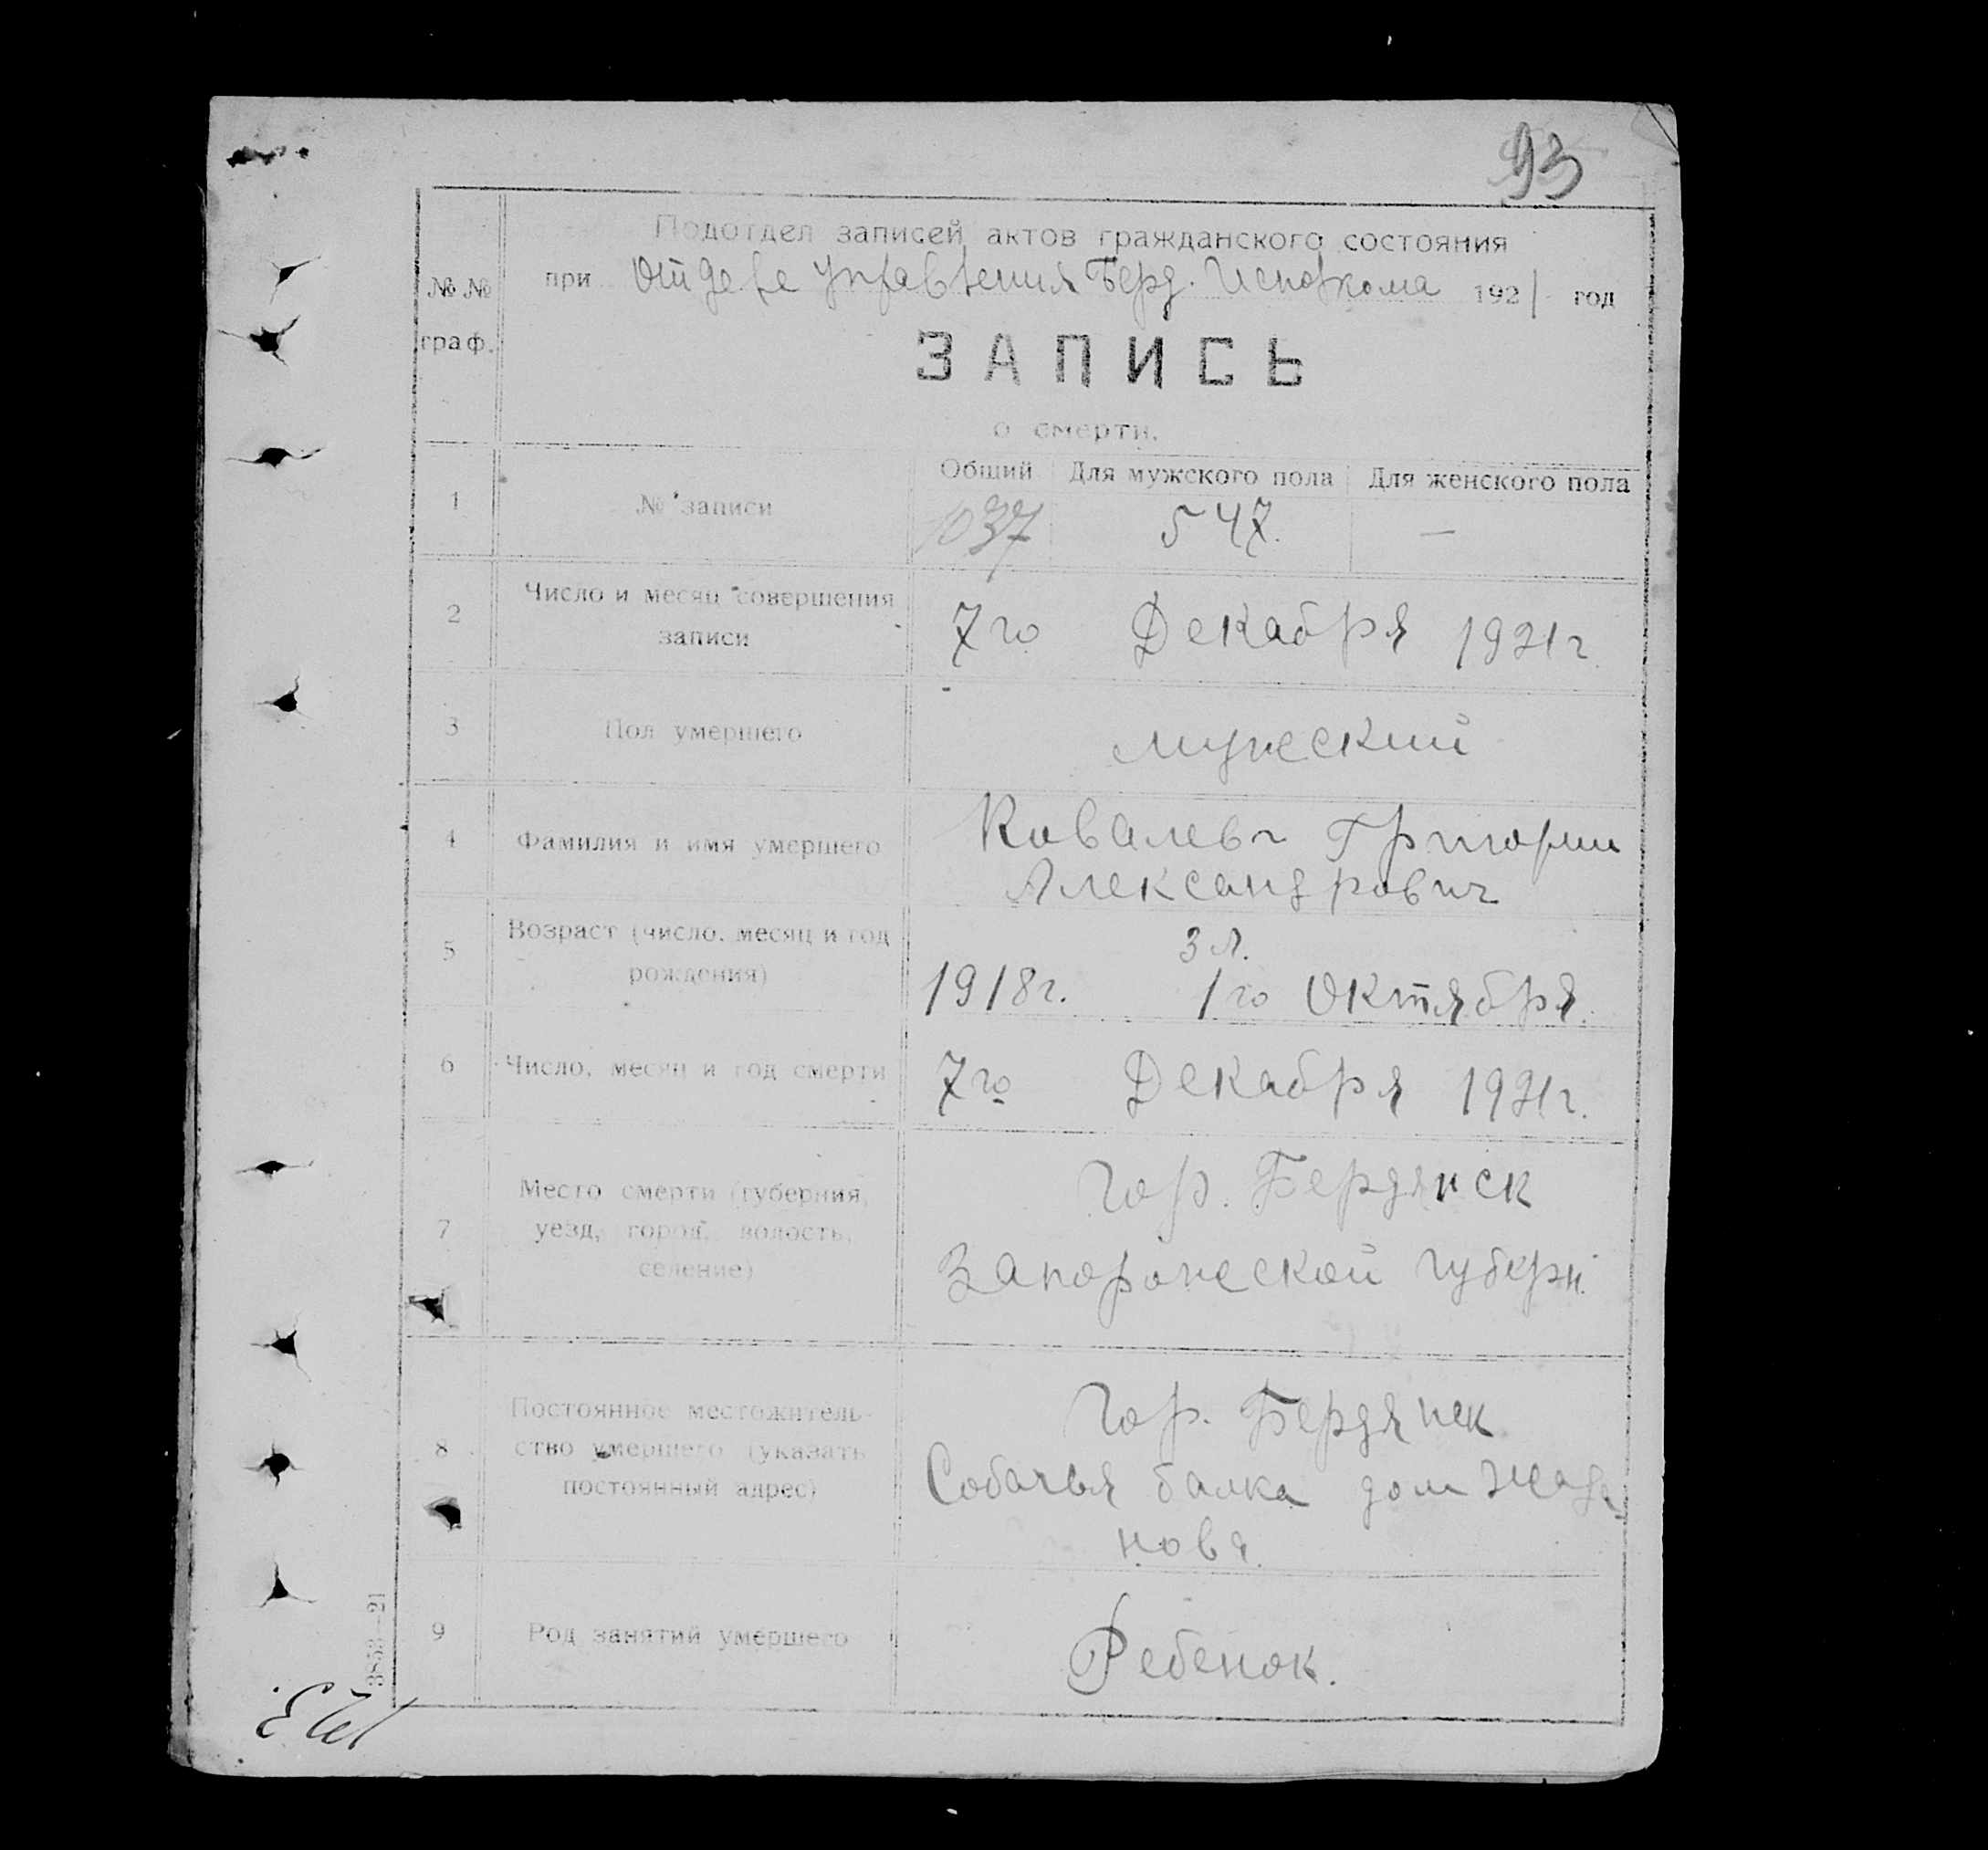 93
Подотдел записей актов гражданского состояния
№№ граф.
при Отделе Управления Берд. Исполкома 1921 год
ЗАПИСЬ
о смерти.
Общий Для мужского пола Для женского пола
1 № записи 1037 547. —
2 Число и месяц совершения
записи
7го Декабря 1921г.
3 Пол умершего мужеский
4 Фамилия и имя умершего
Ковалев Григорий
Александрович
5 Возраст (число, месяц и год
рождения)
3 л.
1918г. 1го Октября.
6 Число, месяц и год смерти 7го Декабря 1921г.
7 Место смерти (губерния,
уезд, город, волость,
селение)
гор. Бердянск
Запорожеской губерн.
8 Постоянное местожитель-
ство умершего (указать
постоянный адрес)
гор. Бердянск
Собачья балка дом Жада
нова.
9 Род занятий умершего Ребенок.
3853—21